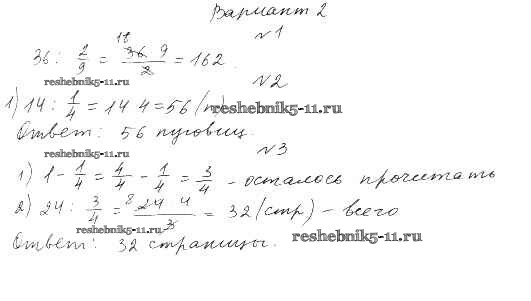 Вариант 2
№1
36 : 2/9 = 18 36 9 / 2 = 162.
reshebnik5-11.ru
№2
1) 14 : 1/4 = 14 4 = 56 (п) reshebnik5-11.ru
Ответ: 56 пуговиц.
reshebnik5-11.ru
№3
1) 1 - 1/4 = 4/4 - 1/4 = 3/4 - осталось прочитать
2) 24 : 3/4 = 8 24 4 / 3 = 32 (стр) - всего
reshebnik5-11.ru
Ответ: 32 страницы. reshebnik5-11.ru